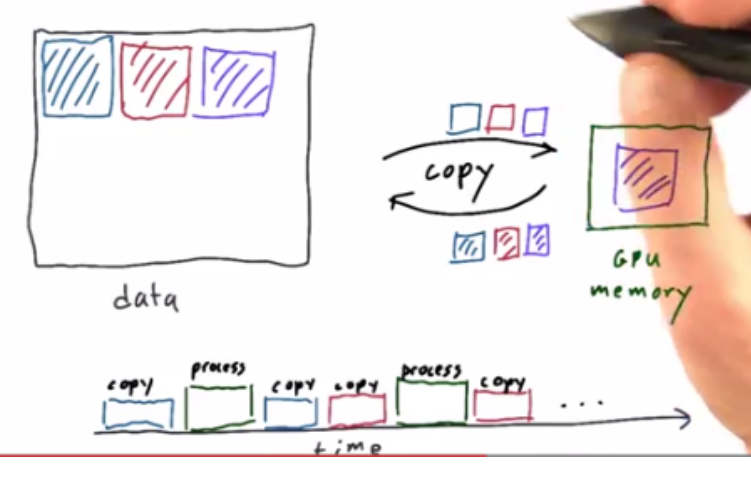 copy
GPU
memory
data
copy process copy copy process copy
...
time